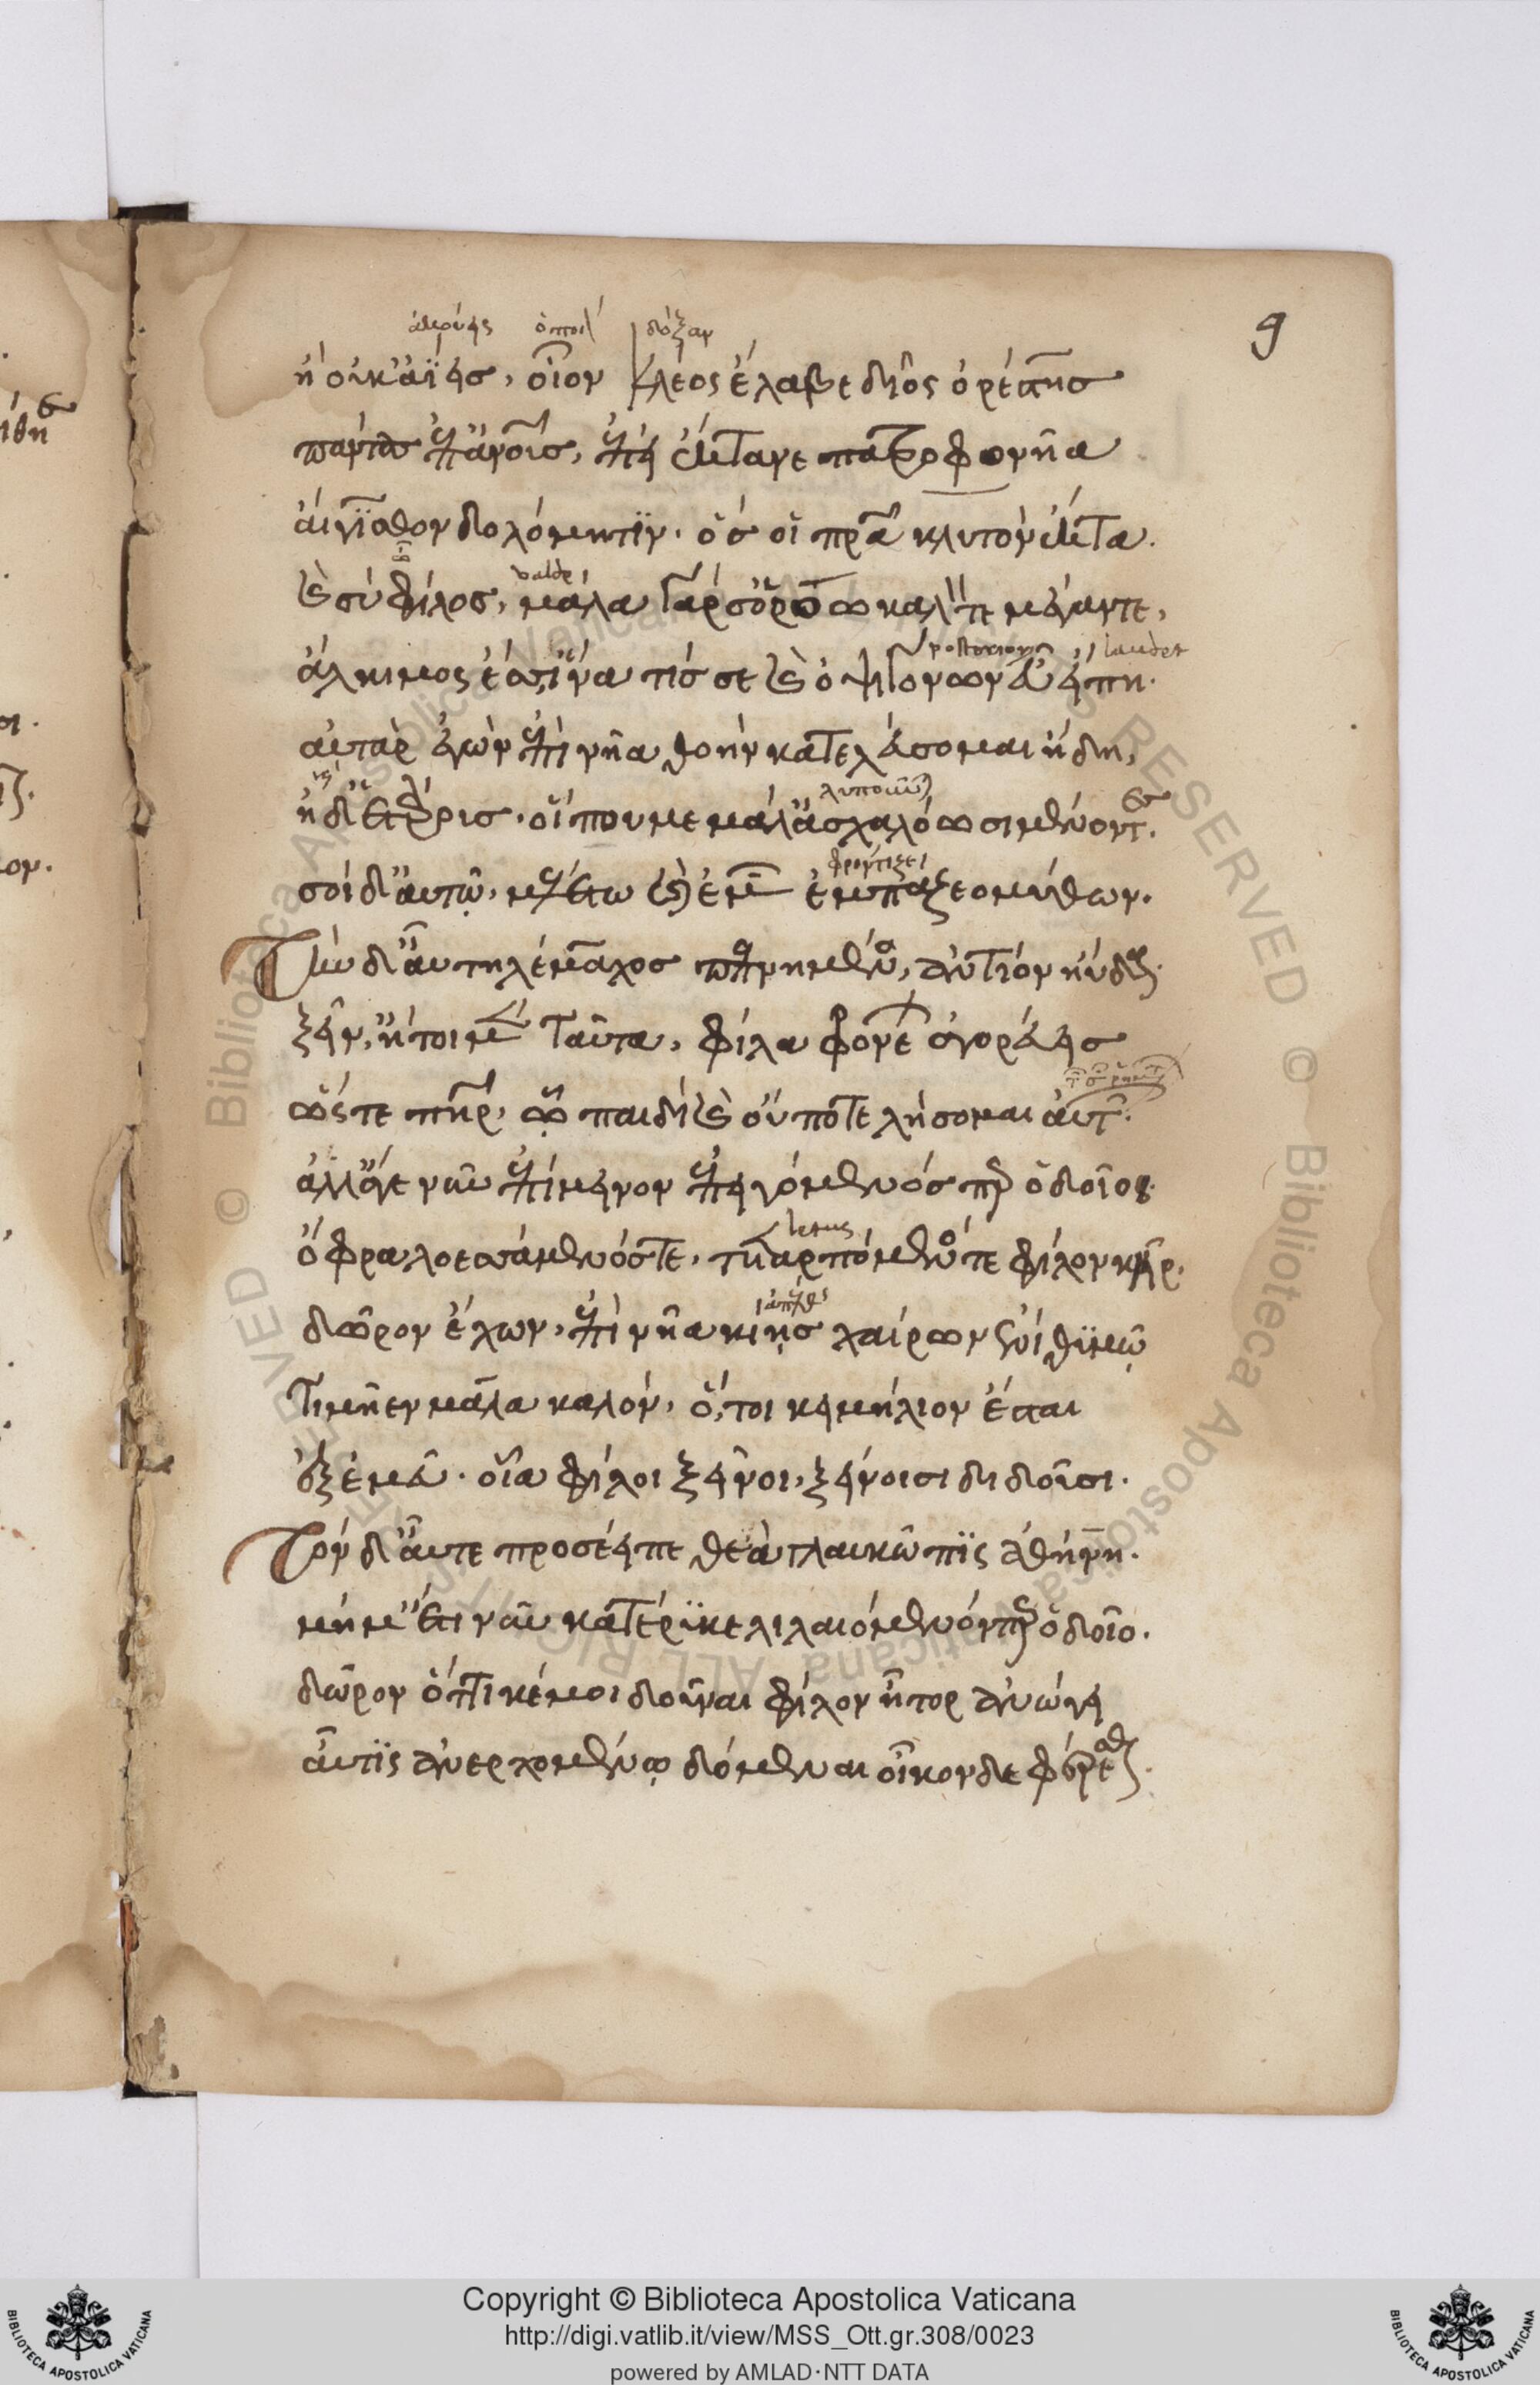 9
ἀκούεις ὁποῖ δόξαν
ἢ οὐκ ἀΐεις, οἷον κλέος ἔλαβε δῖος ὀρέστης
πάντας ἐπ' ἀν̅ο̅ι̅ς, ἐπεὶ ἔκτανε πατροφονῆα
αἴγισθον δολόμητιν· ὅς οἱ πρ̅α̅ κλυτὸν ἔκτα.
valde
καὶ σὺ φίλος, μάλα γάρ σ' ὁρόω καλόν τε μέγαν τε,
posteriorum laudet
ἄλκιμος ἔσσ', ἵνα τίς σε καὶ ὀψιγόνων εὖ εἴπη.
αὐτὰρ ἐγὼν ἐπὶ νῆα θοὴν κατελεύσομαι ἤδη,
λυποῦν̅
ἠδ' ἑτάρους. οἵ που με μάλ' ἀσχαλόωσι μένοντες.
φρόντιζε
σοὶ δ' αὐτῷ μελέτω καὶ ἐμῶν ἐμπάζεο μύθων.
Τὸν δ' αὖ τηλέμαχος πεπνυμένος, ἀντίον ηὔδα.
ξεῖν', ἤτοι μὲν ταῦτα, φίλα φρονέων ἀγορεύεις
ὥς τε πη̅ρ, ᾧ παιδὶ καὶ οὔποτε λήσομαι αὐτῶν.
ἀλλ' ἄγε νῦν ἐπίμεινον ἐπειγόμενός περ ὁδοῖο.
letus
ὄφρα λοεσσάμενός τε, τεταρπόμενός τε φίλον κῆρ.
δῶρον ἔχων, ἐπὶ νῆα κίῃς χαίρων ἐνὶ θυμῷ
τιμῆεν μάλα καλόν, ὅ,τοι κειμήλιον ἔσται
ἐξ ἐμεῦ. οἷα φίλοι ξεῖνοι, ξείνοισι διδοῦσι.
Τὸν δ' αὖτε προσέειπε θεὰ γλαυκῶπις ἀθήνη.
μή μ' ἔτι νῦν κατέρυκε λιλαιόμενόν περ ὁδοῖο.
δῶρον ὅττι κέ μοι δοῦναι φίλον ἦτορ ἀνώγει
αὖτις ἀνερχομένῳ δόμεναι οἶκον δὲ φέρεσθαι.
Copyright © Biblioteca Apostolica Vaticana
http://digi.vatlib.it/view/MSS_Ott.gr.308/0023
powered by AMLAD·NTT DATA